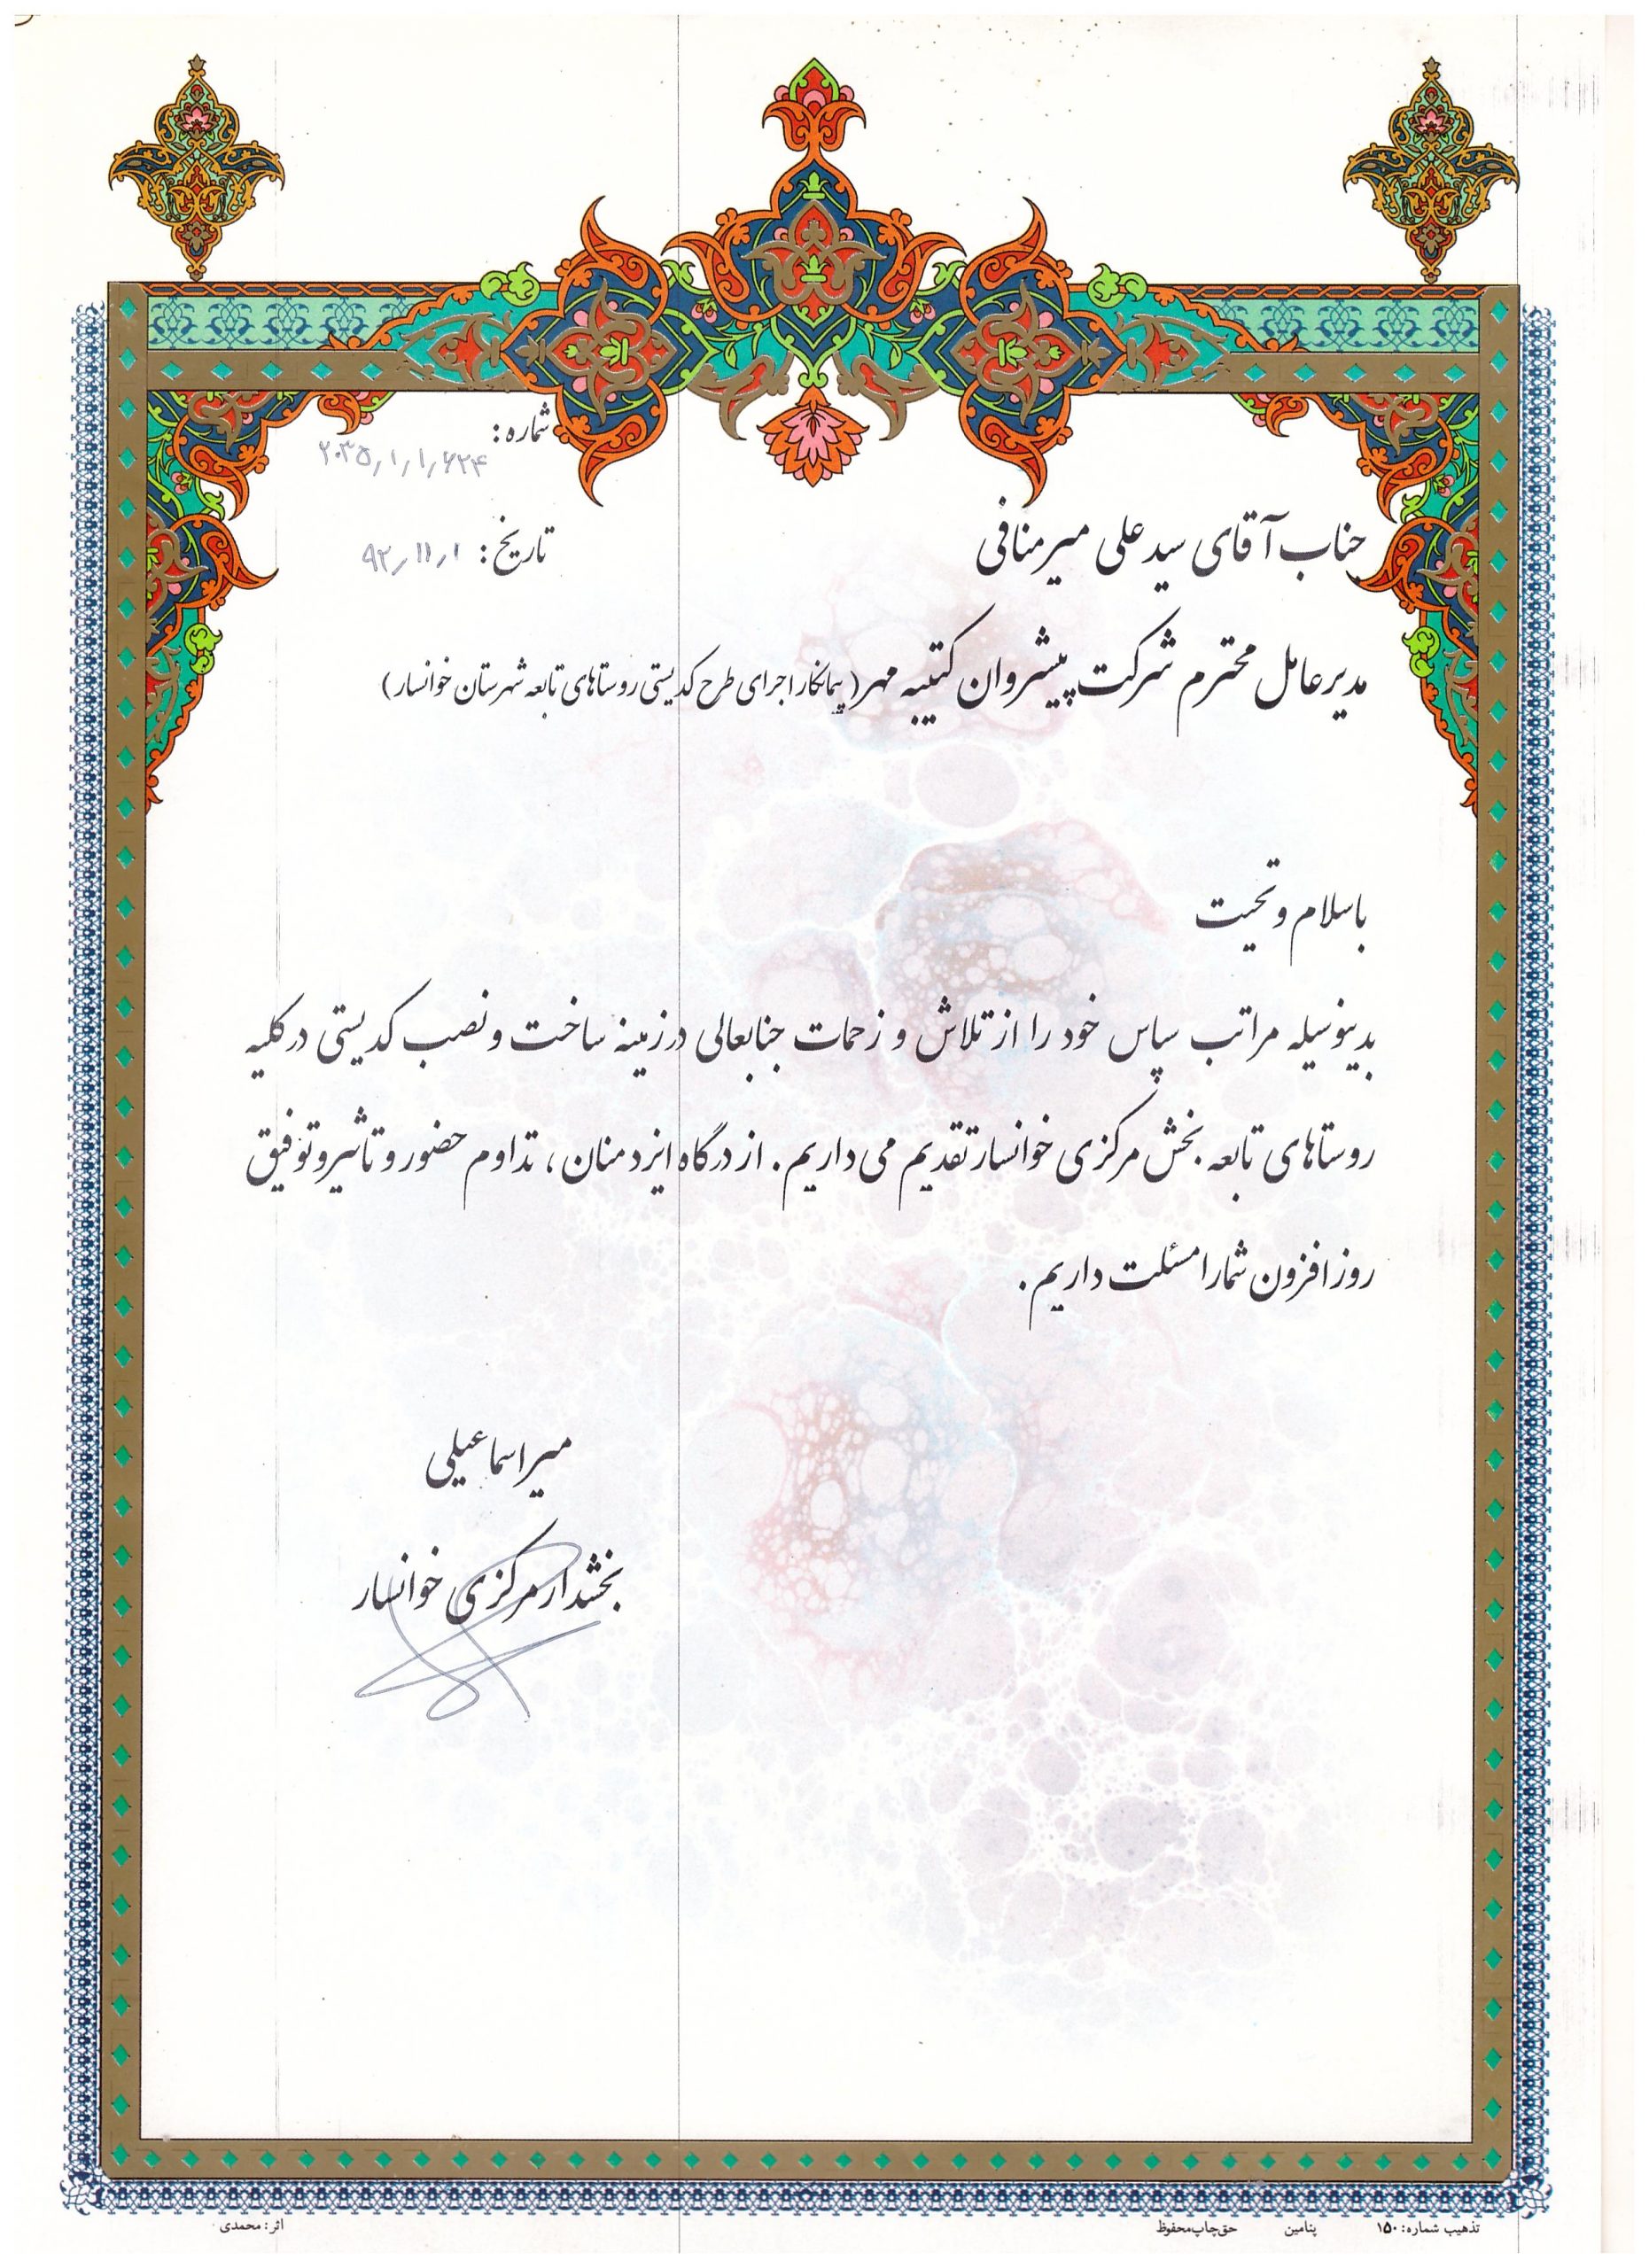 شماره: ۲۰۳۵/۱/۱/۶۲۴
جناب آقای سید علی میرمنافی
تاریخ: ۹۲/۱۱/۱
مدیرعامل محترم شرکت پیشروان کتیبه مهر (پیمانکار اجرای طرح کدپستی روستاهای تابعه شهرستان خوانسار)
باسلام و تحیت
بدینوسیله مراتب سپاس خود را از تلاش و زحمات جنابعالی در زمینه ساخت و نصب کدپستی در کلیه
روستاهای تابعه بخش مرکزی خوانسار تقدیم می داریم. از درگاه ایزد منان، تداوم حضور و تاثیر و توفیق
روز افزون شما را مسئلت داریم.
میراسماعیلی
بخشدار مرکزی خوانسار
تذهیب شماره: ۱۵۰ پنامین حق‌چاپ‌محفوظ اثر: محمدی